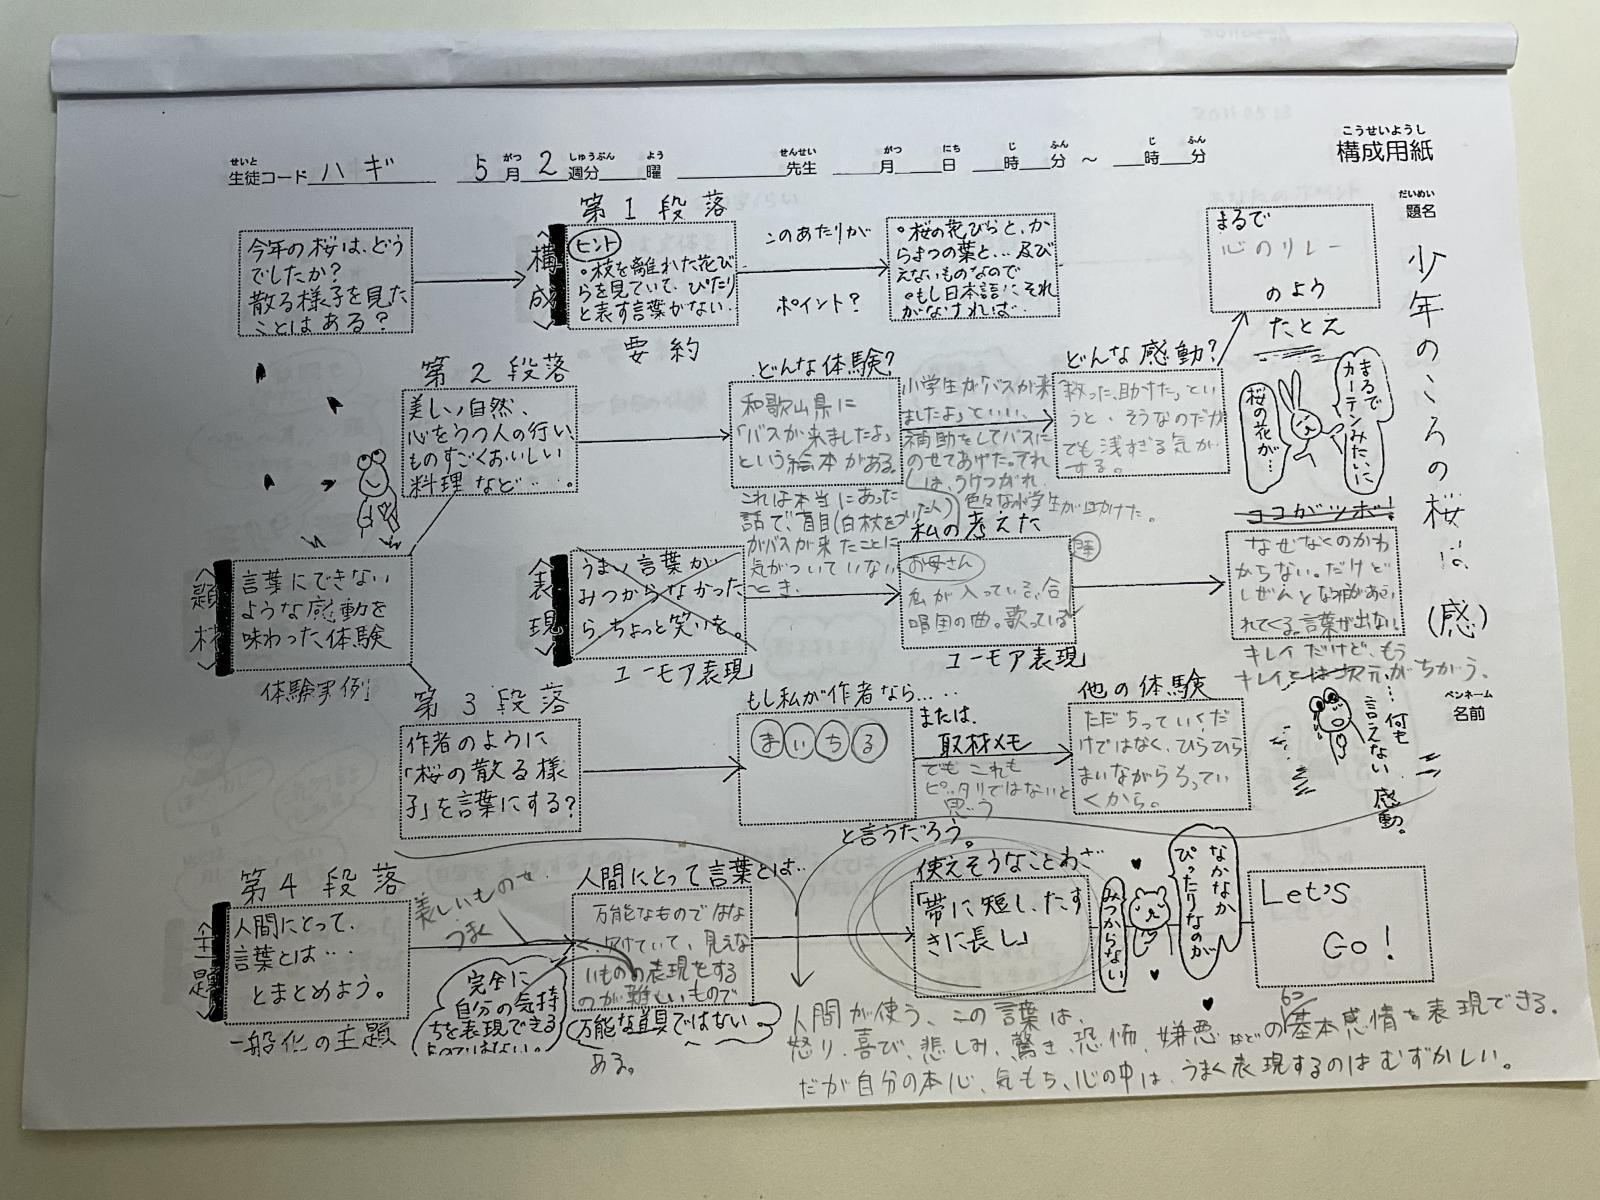 こうせいようし
構成用紙
せいと がつ しゅうぶん よう せんせい がつ にち じ ふん じ ふん
生徒コード ハギ 5月2週分 曜 先生 月 日 時 分 ~ 時 分
だいめい
題名
少年のころの桜は(感)
ペンネーム
名前
今年の桜は、どう
でしたか?
散る様子を見た
ことはある?
第1段落
構成
ヒント
。枝を離れた花び
らを見ていて、ぴたり
と表す言葉がない…
要約
このあたりが
ポイント?
。桜の花びらと、か
らまつの葉と…及び
えないものなので
。もし日本語にそれ
がなければ…
まるで
心のリレー
のよう
たとえ
まるで
カーテンみたいに
桜の花が…
ココがツボ!
第2段落
美しい自然、
心をうつ人の行い、
ものすごくおいしい
料理など…。
どんな体験?
和歌山県に
「バスが来ましたよ」
という絵本がある。
これは本当にあった
話で、盲目(白杖をついた人)
がバスが来たことに
気がついていない
とき、
小学生が「バスが来
ましたよ」といい、
補助をしてバスに
のせてあげた。それ
は、うけつがれ
色々な小学生が助けた。
どんな感動?
「救った、助けた」とい
うと、そうなのだが
でも浅すぎる気が
する。
題材
言葉にできない
ような感動を
味わった体験
体験実例
表現
うまい言葉が
みつからなかった
ら ちょっと笑いを。
ユーモア表現
私の考えた
お母さん
私が入っている、合
唱団の曲。歌っていると
ユーモア表現
なぜなくのかわ
からない。だけど
しぜんとなみだがあふ
れてくる。言葉が出ない
キレイだけど、もう
キレイとは次元がちがう。
…何も
言えない
感動。
第3段落
作者のように
「桜の散る様
子」を言葉にする?
もし私が作者なら……
まいちる
と言うだろう。
または、
取材メモ
でもこれも
ピッタリではないと
思う
他の体験
ただちっていくだ
けではなく、ひらひら
まいながらちってい
くから。
第4段落
主題
人間にとって、
言葉とは…
とまとめよう。
一般化の主題
美しいものを
うまく
完全に
自分の気持
ちを表現できる
ものではない。
人間にとって言葉とは…
万能なものではな
く、欠けていて、見えな
いものの表現をする
のが難しいもので
ある。
万能な道具ではない
使えそうなことわざ
「帯に短し、たす
きに長し」
なかなか
ぴったりなのが
みつからない
Let's
Go!
人間が使う、この言葉は、
怒り、喜び、悲しみ、驚き、恐怖、嫌悪などの6つの基本感情を表現できる。
だが自分の本心、気もち、心の中は、うまく表現するのはむずかしい。